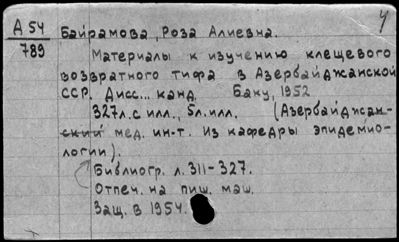 У
А 54 Байрамова, Роза Алиевна.
789
Материалы к изучению клещевого
возвратного тифа в Азербайджанской
ССР. Дисс... канд. Баку, 1952
327л. с илл., 5л. илл. (Азербайджан-
ский мед. ин-т. Из кафедры эпидемио-
логии).
Библиогр. л. 311-327.
Отпеч. на пиш. маш.
Защ. в 1954.